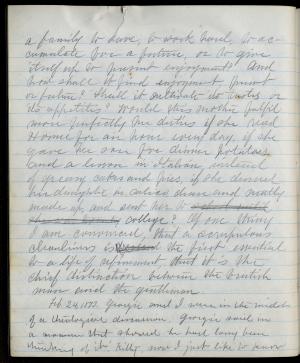 a family to dure to work hard, to ac-
cumulate for a fortune, or to give
itself up to present enjoyment? And
how shall it find enjoyment, present
or future? Shall it cultivate its tastes or
its appetites? Would this mother fulfil
more perfectly her duties if she read
Homer for an hour every day, if she
gave her son for dinner potatoes
and a lesson in Italian, instead
of greasy cakes and pies, if she dressed
her daughter in calico dress and neatly
made up, and sent her to
college? Of one thing
I am convinced, that a scrupulous
cleanliness is the first essential
to a life of refinement that it is the
chief distinction between the brutish
man and the gentleman.
Feb 24, 1873. Georgie and I were in the midst
of a theological discussion, Georgie said in
a manner that showed he had long been
thinking of it "Kitty, now I just like to know